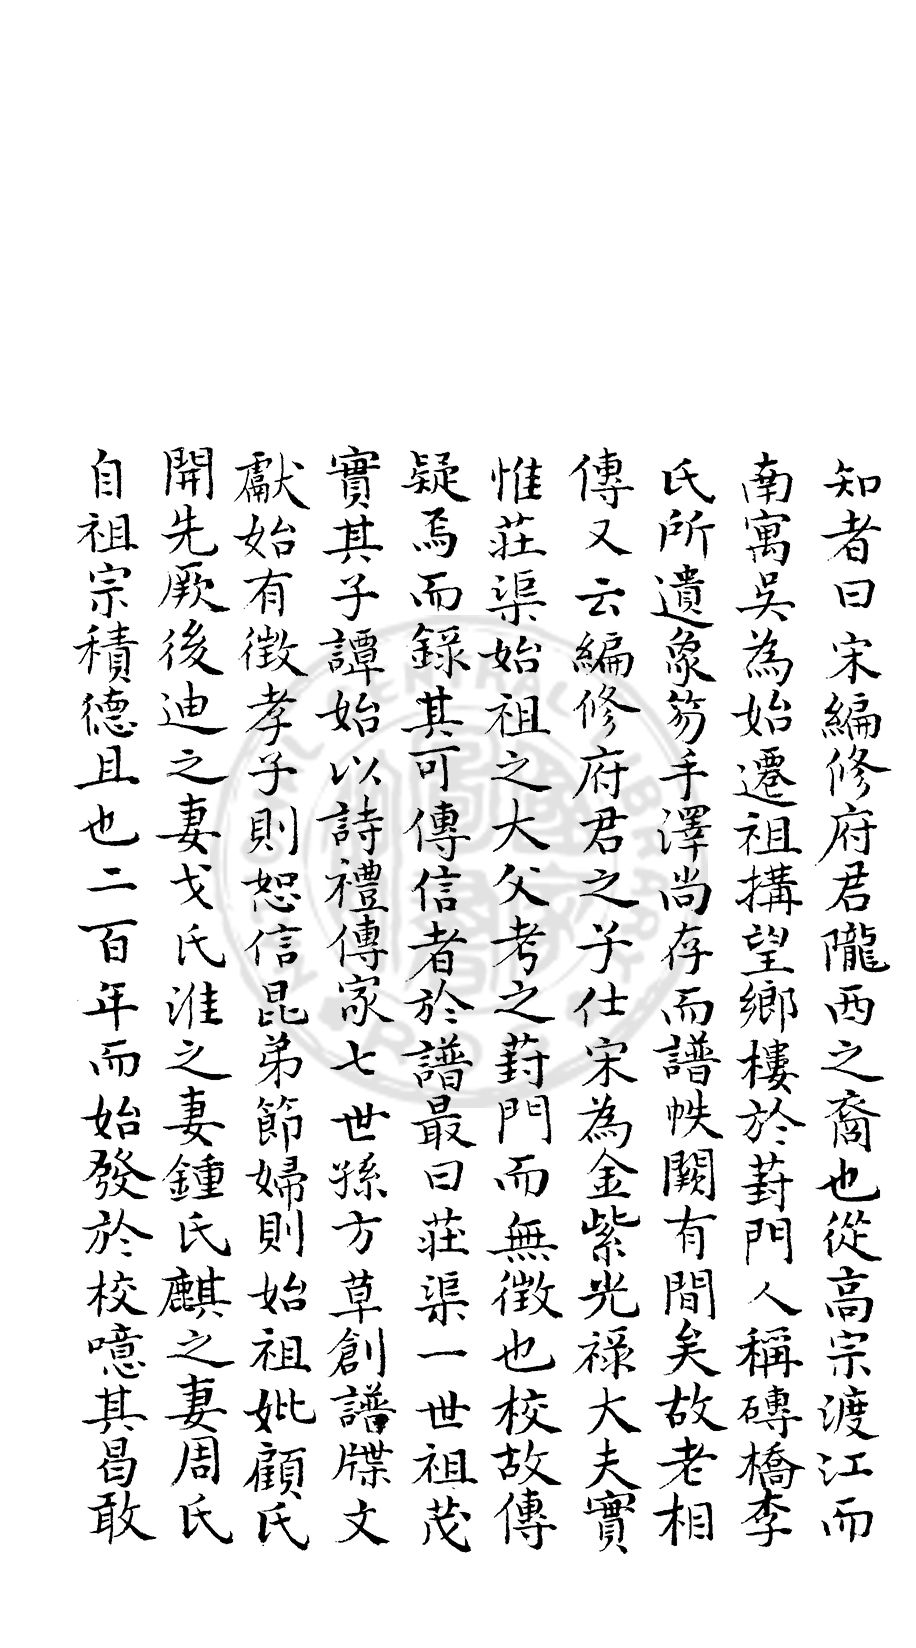 知者曰宋編修府君隴西之裔也從高宗渡江而
南寓吳為始遷祖搆望鄉樓於葑門人稱磚橋李
氏所遺象笏手澤尚存而譜帙闕有間矣故老相
傳又云編修府君之子仕宋為金紫光祿大夫實
惟莊渠始祖之大父考之葑門而無徵也校故傳
疑焉而錄其可傳信者於譜最曰莊渠一世祖茂
實其子譚始以詩禮傳家七世孫方草創譜牒文
獻始有徵孝子則恕信昆弟節婦則始祖妣顧氏
開先厥後迪之妻戈氏淮之妻鍾氏麒之妻周氏
自祖宗積德且也二百年而始發於校噫其曷敢